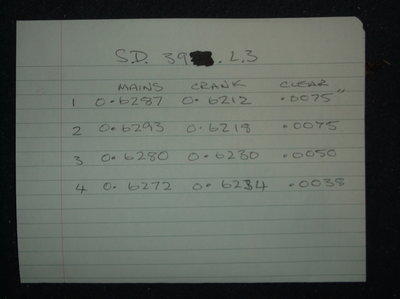 S.D. 39 . L.3
MAINS CRANK CLEAR
1 0.6287 0.6212 .0075"
2 0.6293 0.6218 .0075
3 0.6280 0.6230 .0050
4 0.6272 0.6234 .0038